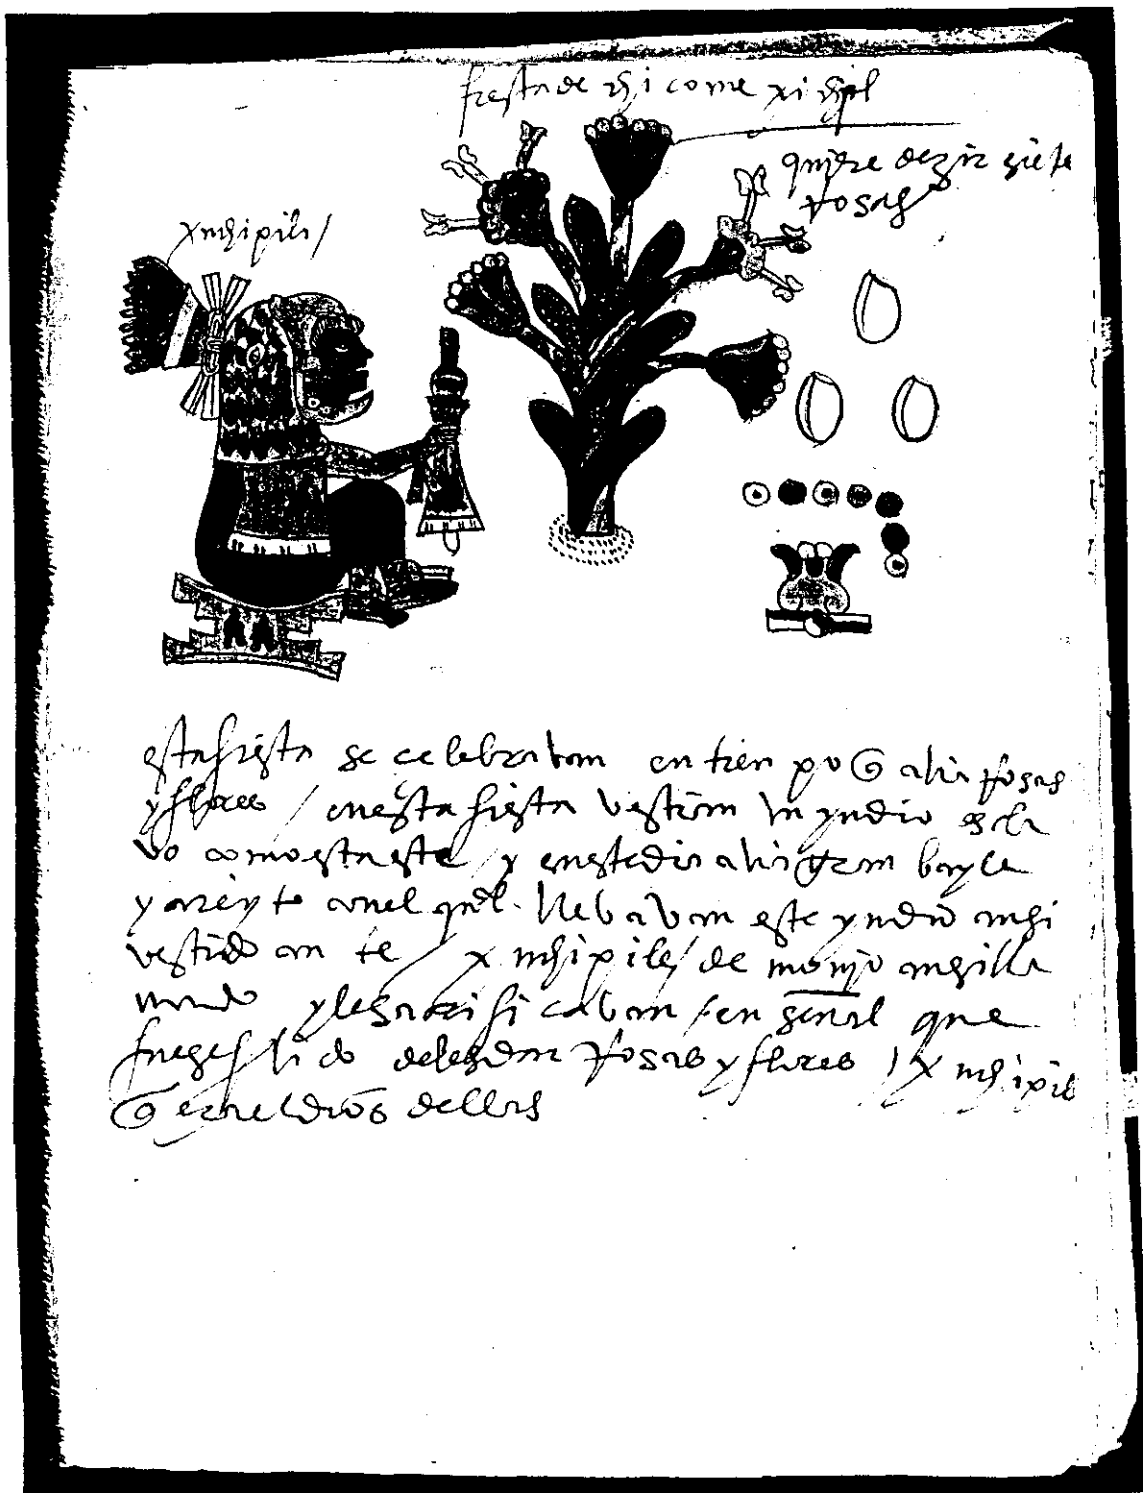 fiesta de chicome xuchil
quiere dezir siete
rosas
xuchipili /
esta fiesta se celebravan en tienpo q avia rosas
y flores / en esta fiesta vestian un yndio escla
vo como esta este / y en este dia avia gran bayle
y areyto con el qual llebavan este yndio ansi
vestido ante / xuchipile / de ansilla
y le sacrificavan / en señal que
fuese de les dar rosas y flores / xuchipil
q era el dios dellas